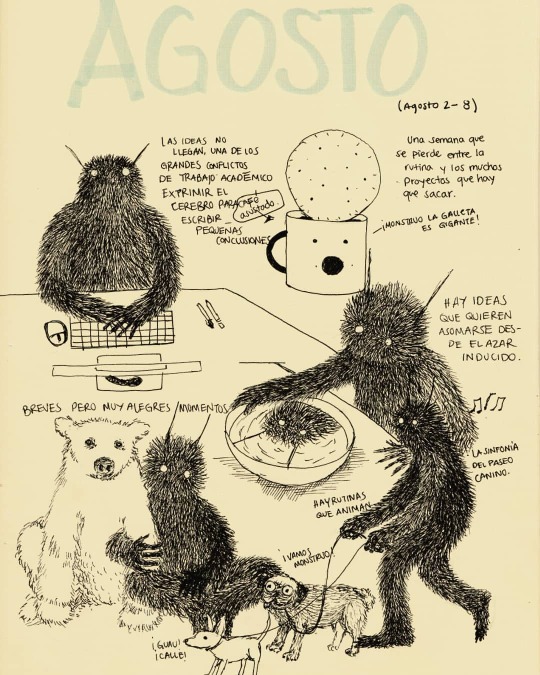 AGOSTO
(Agosto 2-8)
LAS IDEAS NO
LLEGAN, UNA DE LOS
GRANDES CONFLICTOS
DE TRABAJO ACADÉMICO
EXPRIMIR EL
CEREBRO PARA
CAFÉ
asustado
ESCRIBIR
PEQUEÑAS
CONCLUSIONES
Una semana que
se pierde entre la
rutina y los muchos
Proyectos que hay
que sacar.
¡MONSTRUO LA GALLETA
ES GIGANTE!
HAY IDEAS
QUE QUIEREN
ASOMARSE DES-
DE EL AZAR
INDUCIDO.
BREVES PERO MUY ALEGRES MOMENTOS
LA SINFONÍA
DEL PASEO
CANINO.
HAY RUTINAS
QUE ANIMAN
¡VAMOS
MONSTRUO!
¡GUAU!
¡CALLE!